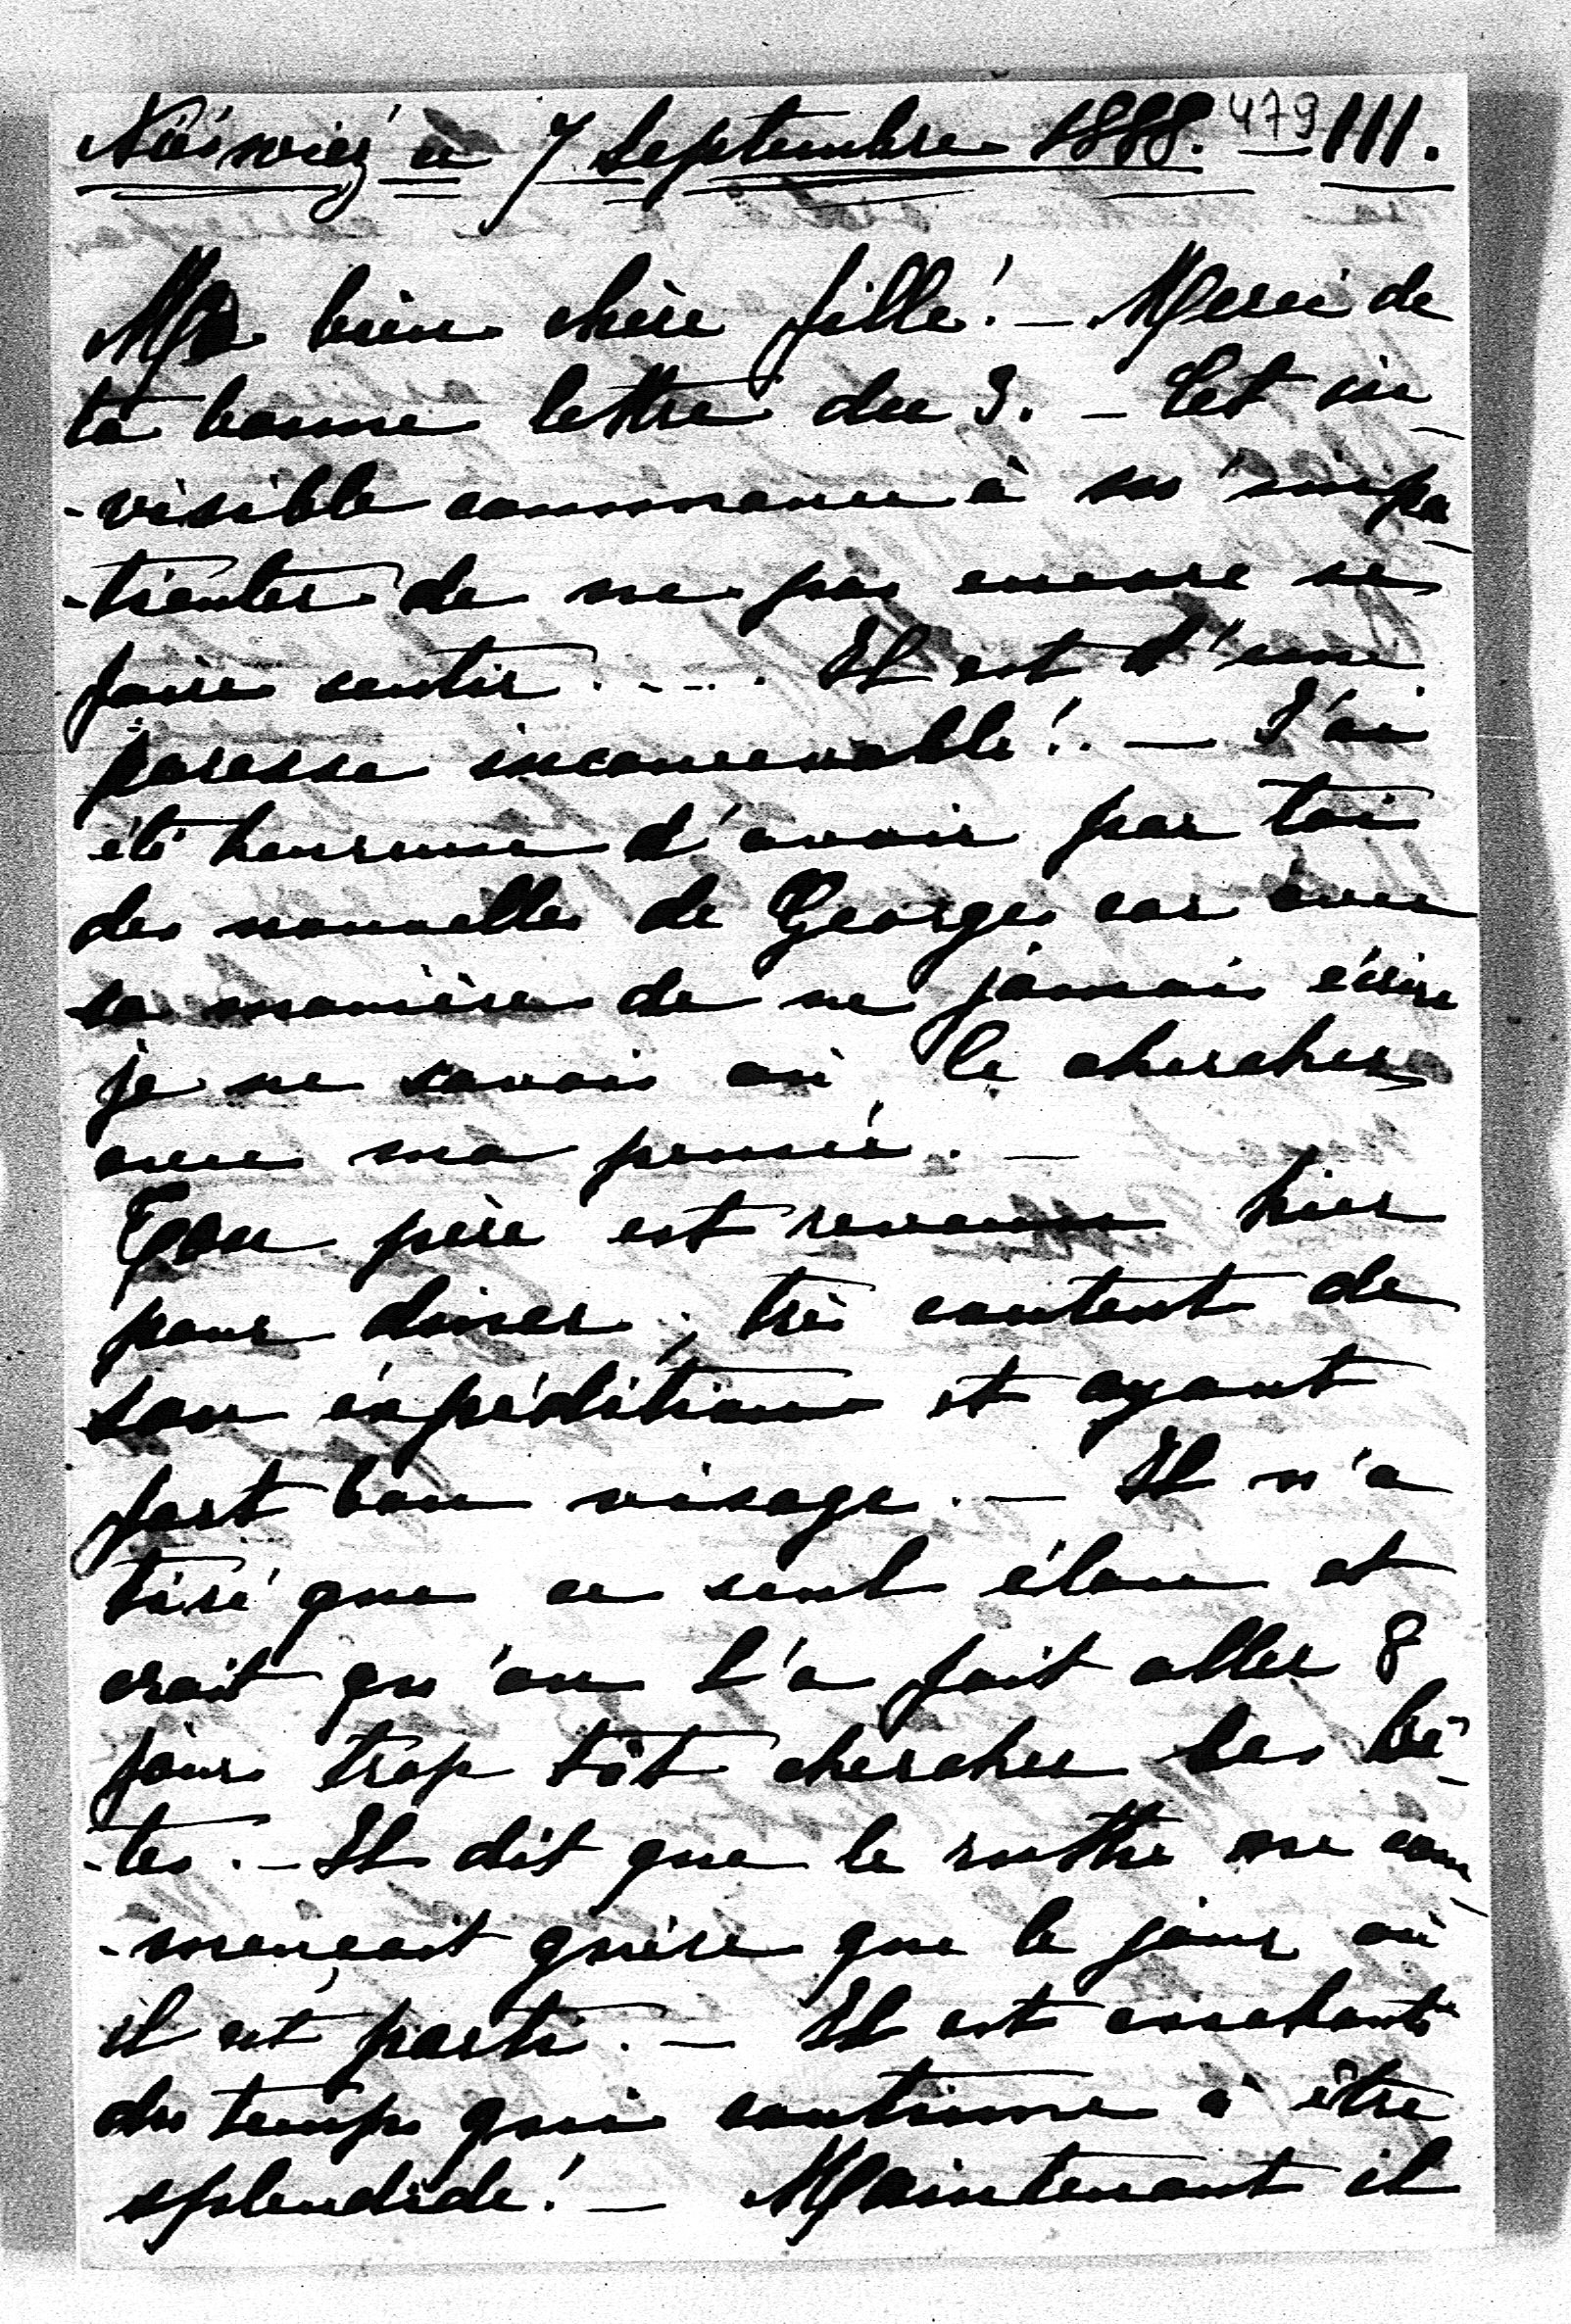 Nieśwież ce 7 Septembre 1888. 479 III.
Ma bien chère fille! – Merci de
ta bonne lettre du 3. – Cet in
-visible commence à m'impa
-tienter de ne pas encore se
faire sentir..... Il est d'une
paresse inconcevable!. – J'ai
été heureuse d'avoir par toi
des nouvelles de Georges car avec
sa manière de ne jamais écrire
je ne savais où le chercher
avec ma pensée. –
Ton père est revenu hier
pour dîner, très content de
son expédition et ayant
fort bon visage. – Il n'a
tiré que ce seul élan et
croit qu'on l'a fait aller 8
jours trop tôt chercher les bê
-tes. – Il dit que le ruthe ne com
-mençait guère que le jour où
il est parti. – Il est enchanté
du temps qui continue à être
splendide! – Maintenant il